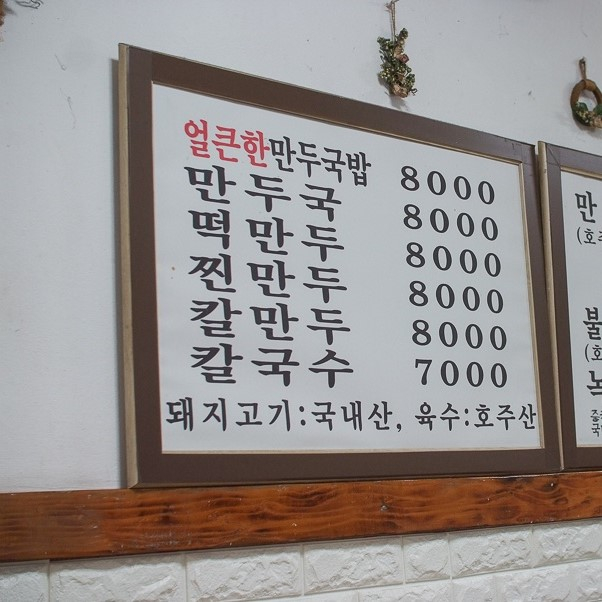 얼큰한만두국밥 8000
만두국 8000
떡만두 8000
찐만두 8000
칼만두 8000
칼국수 7000
돼지고기:국내산, 육수:호주산
만
(호주
불
(호
녹